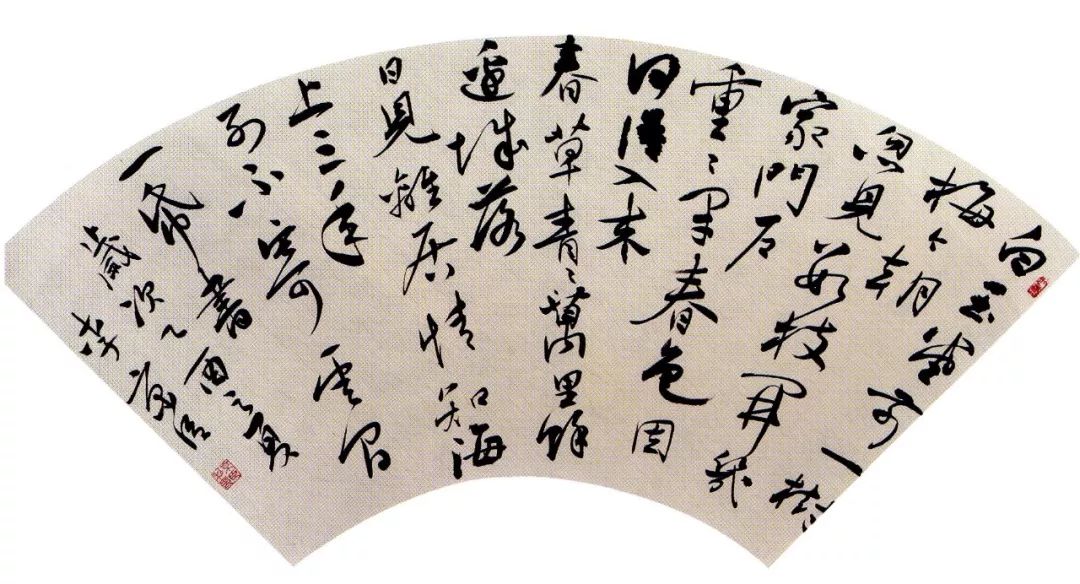 白玉堂前一樹
梅今朝
忽見數枝開兒
家門户
重重閉春色因
何得入来
春草青青萬里餘
邊城落
日見離居情知海
上三年
别不寄雲間
一紙書
歲次乙酉夏
李